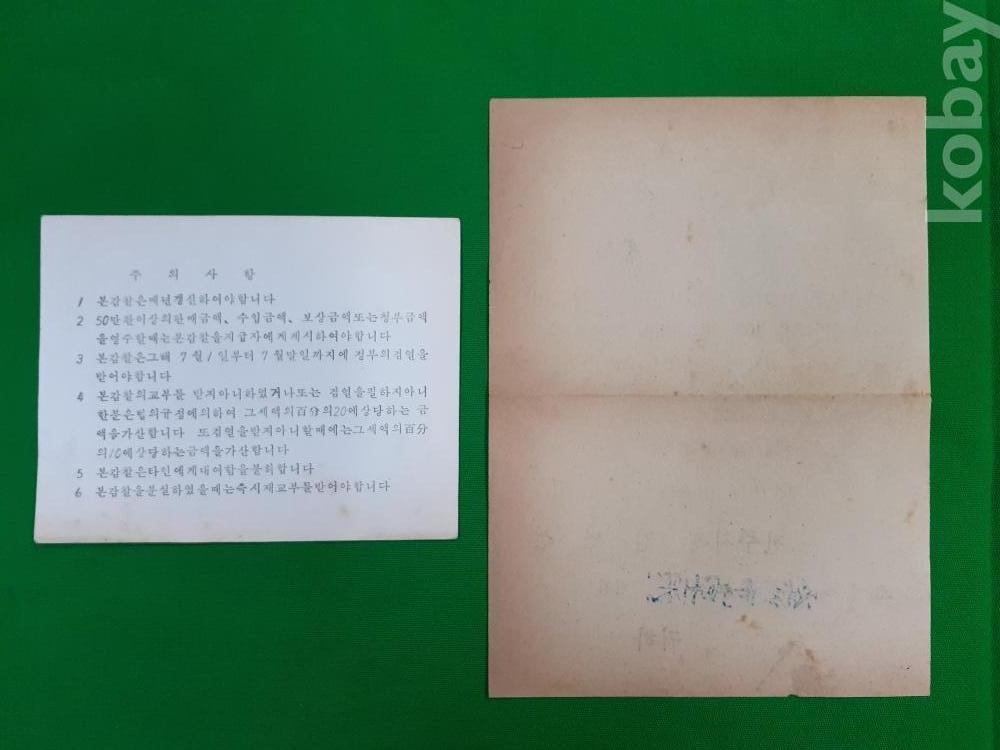 주 의 사 항
1 본감찰은매년갱신하여야합니다
2 50만환이상의판매금액、수입금액、보상금액또는청부금액
을영수할때는본감찰을지급자에게제시하여야합니다
3 본감찰은그해 7월1일부터 7월말일까지에 정부의검열을
받어야합니다
4 본감찰의교부를 받지아니하였거나또는 검열을필하지아니
한분은법의규정에의하여 그세액의百分의20에상당하는 금
액을가산합니다 또검열을받지아니할때에는그세액의百分
의10에상당하는금액을가산합니다
5 본감찰은타인에게대여함을불허합니다
6 본감찰을분실하였을때는즉시재교부를받어야합니다
kobay